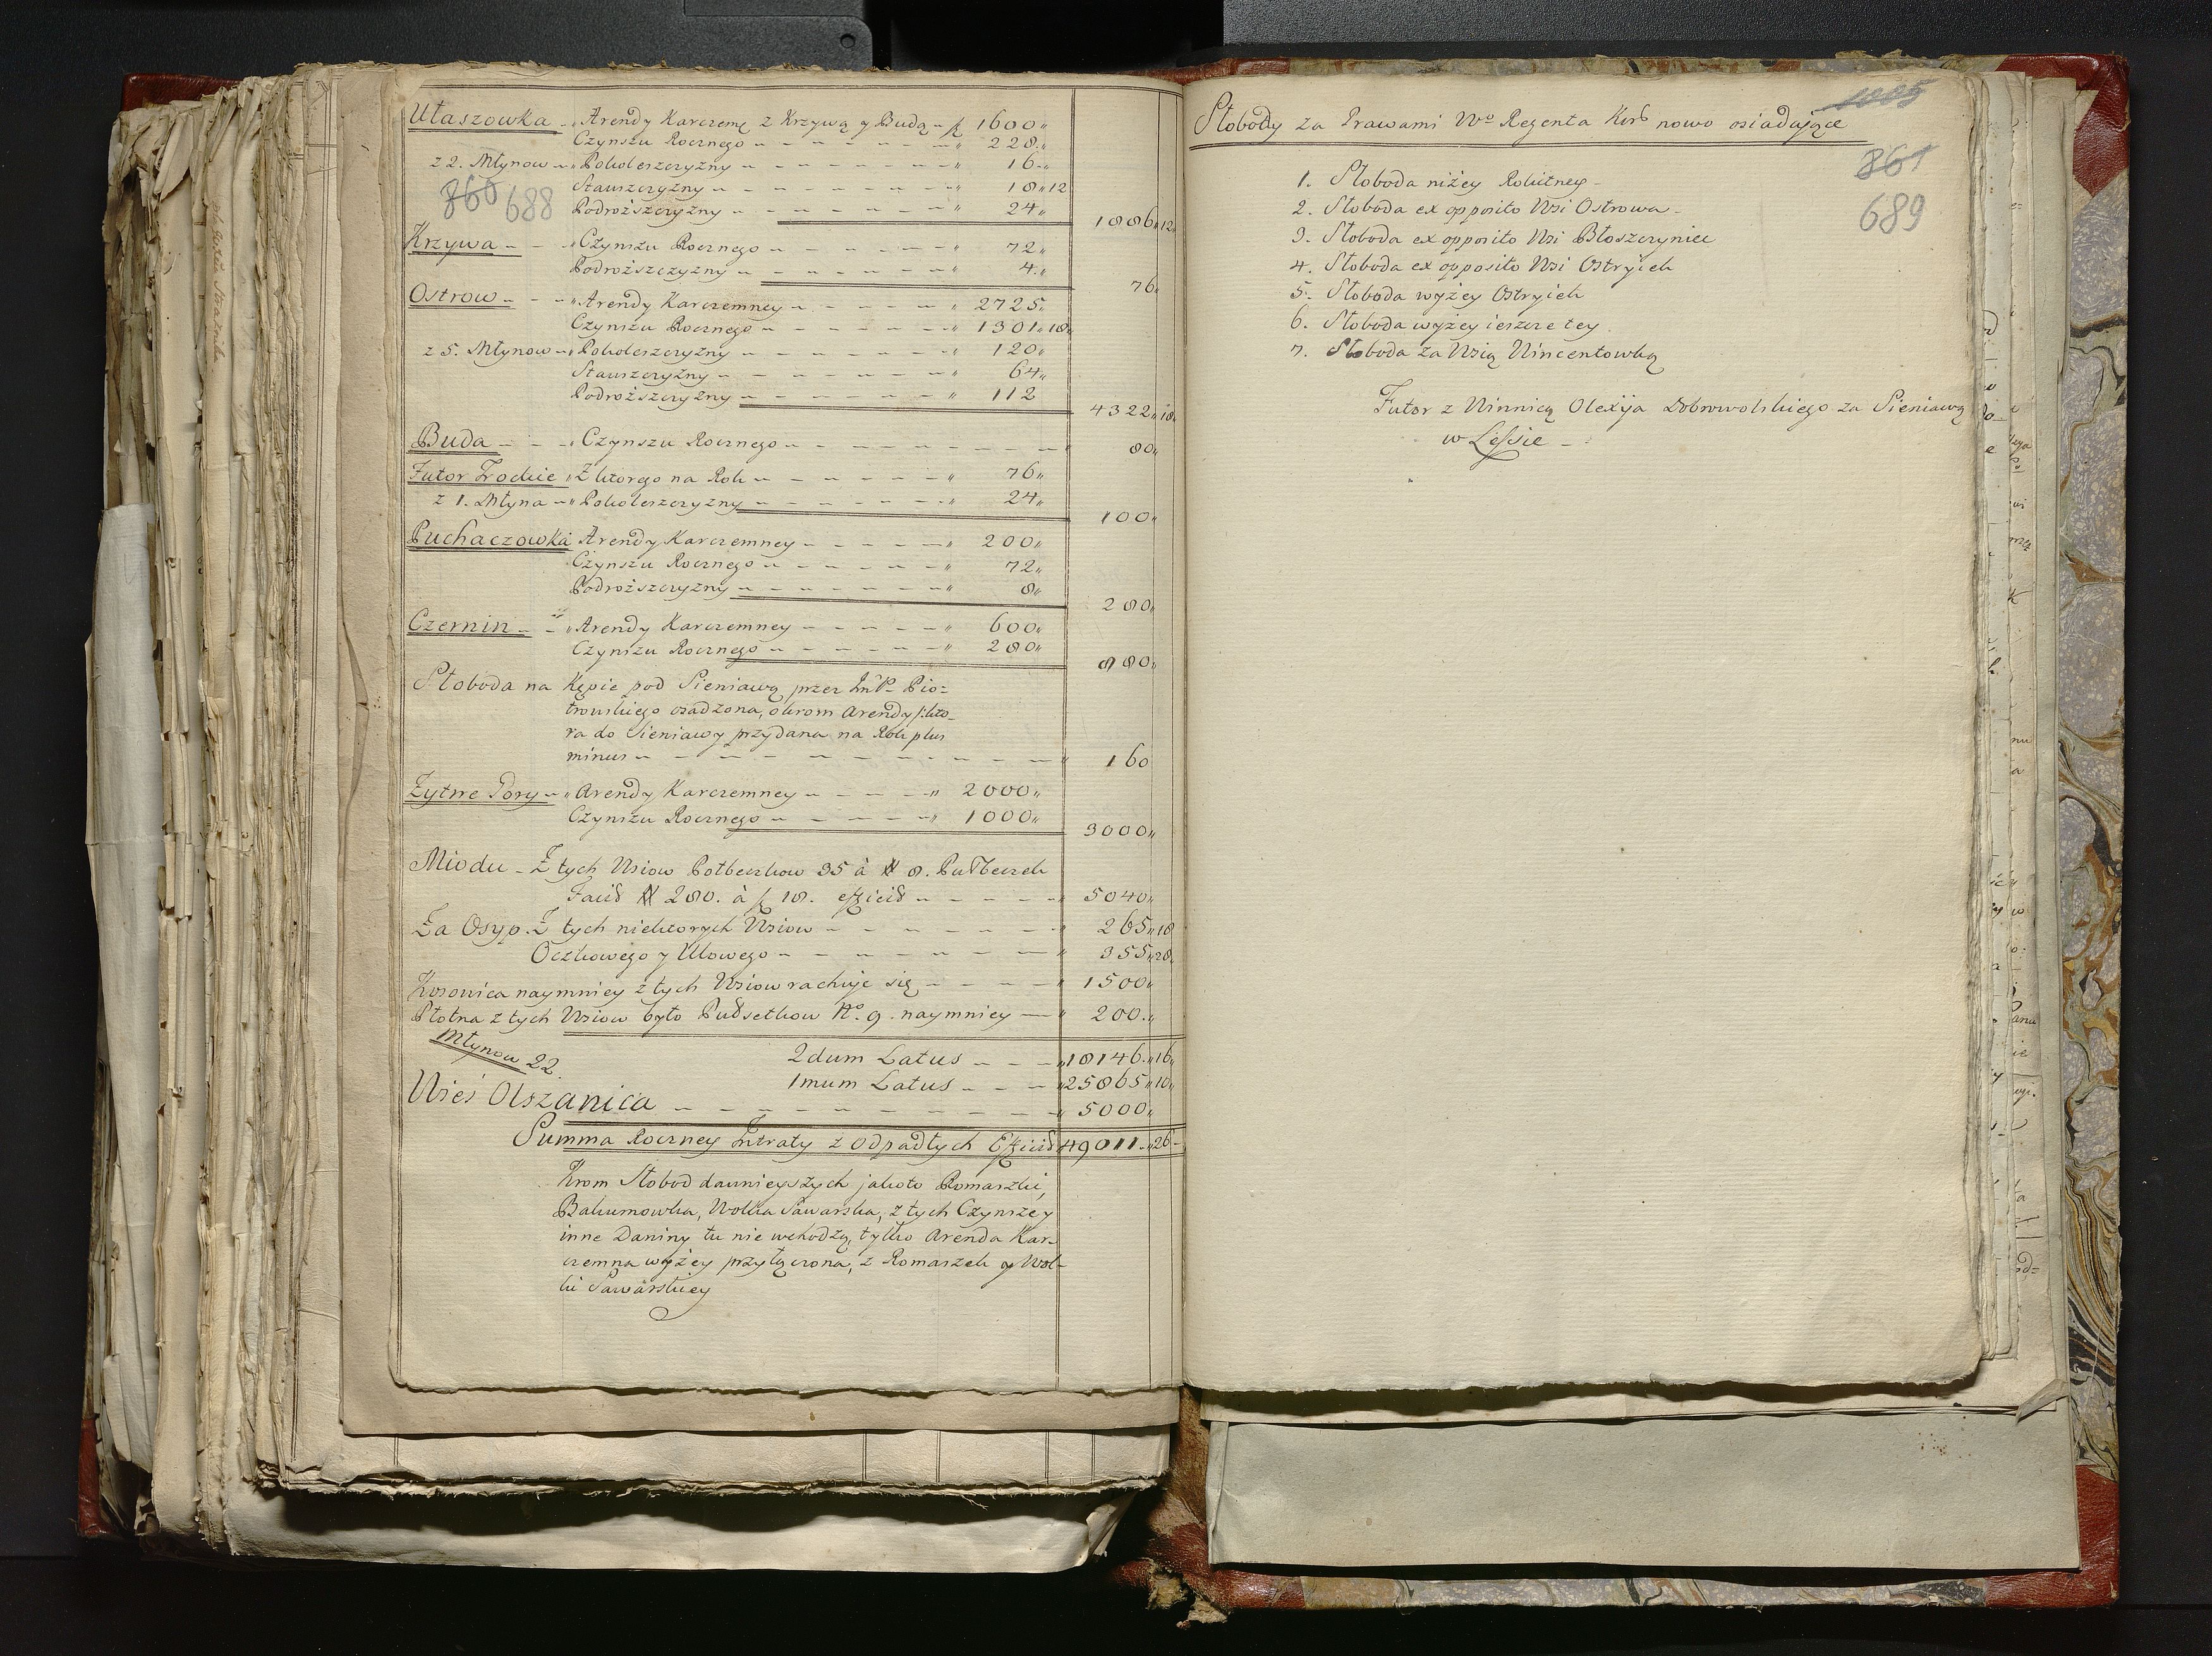 Ułaszowka - „ Arendy Karczemę z Krzywą y Budą - f 1600 „
Czynszu Rocznego - „ 228 „
z 2. Młynow - „ Pokoleszczyzny - „ 16 „
Stawszczyzny - „ 18 „ 12
Podroższczyzny - „ 24 „
1886 „ 12 „
860 688
Krzywa - „ Czynszu Rocznego - „ 72 „
Podroższczyzny - „ 4 „
76 „
Ostrow - „ Arendy Karczemney - „ 2725 „
Czynszu Rocznego - „ 1301 „ 18 „
z 5. Młynow - „ Pokoleszczyzny - „ 120 „
Stawszczyzny - „ 64 „
Podroższczyzny - „ 112
4322 „ 18 „
Buda - „ Czynszu Rocznego - „ 80 „
Futor Trockie „ Z ktorego na Rok - „ 76 „
z 1. Młyna - „ Pokoleszczyzny - „ 24 „
100 „
Puchaczowka Arendy Karczemney - „ 200 „
Czynszu Rocznego - „ 72 „
Podroższczyzny - „ 8 „
280 „
Czernin - „ Arendy Karczemney - „ 600 „
Czynszu Rocznego - „ 280 „
880 „
Słoboda na Kępie pod Sieniawą przez ImP. Pio=
trowskiego osadzona, okrom Arendy /: kto-
ra do Sieniawy przydana na Rok plus
minus - „ 160
Żytne Gory - „ Arendy Karczemney - „ 2000 „
Czynszu Rocznego - „ 1000 „
3000 „
Miodu - Z tych Wsiow Połbeczkow 35 à N 8. Pułbeczek
Facid N 280. à f 18. efficid - „ 5040 „
Za Osyp. Z tych niektorych Wsiow - „ 265 „ 18
Oczkowego y Ulowego - „ 355 „ 28 „
Kosowica naymniey z tych Wsiow rachuje się - „ 1500 „
Płotna z tych Wsiow było Pułsetkow No. 9. naymniey - „ 200 „
Młynow 22.
2dum Latus - „ 18146 „ 16 „
1mum Latus - „ 25865 „ 10 „
Wieś Olszanica - „ 5000 „
Summa Roczney Intraty z Odpadłych Efficid „ 49011 „ 26 -
Krom Słobod dawnieyszych jakoto Romaszki,
Bakumowka, Wolka Sawarska, z tych Czynsze y
inne Daniny tu nie wchodzą, tylko Arenda Kar-
czemna wyżey przyłączona, z Romaszek y Wol-
ki Sawarskiey
1005
Słobody za Prawami Wo Regenta Kor nowo osiadające
861
689
1. Słoboda niżey Rokitney -
2. Słoboda ex opposito Wsi Ostrowa -
3. Słoboda ex opposito Wsi Błoszczyniec
4. Słoboda ex opposito Wsi Ostryich
5. Słoboda wyżey Ostryich
6. Słoboda wyżey ieszcze tey
7. Słoboda za Wsią Wincentowką
Futor z Winnicą Olexija Dobrowolskiego za Sieniawą
w Lessie -